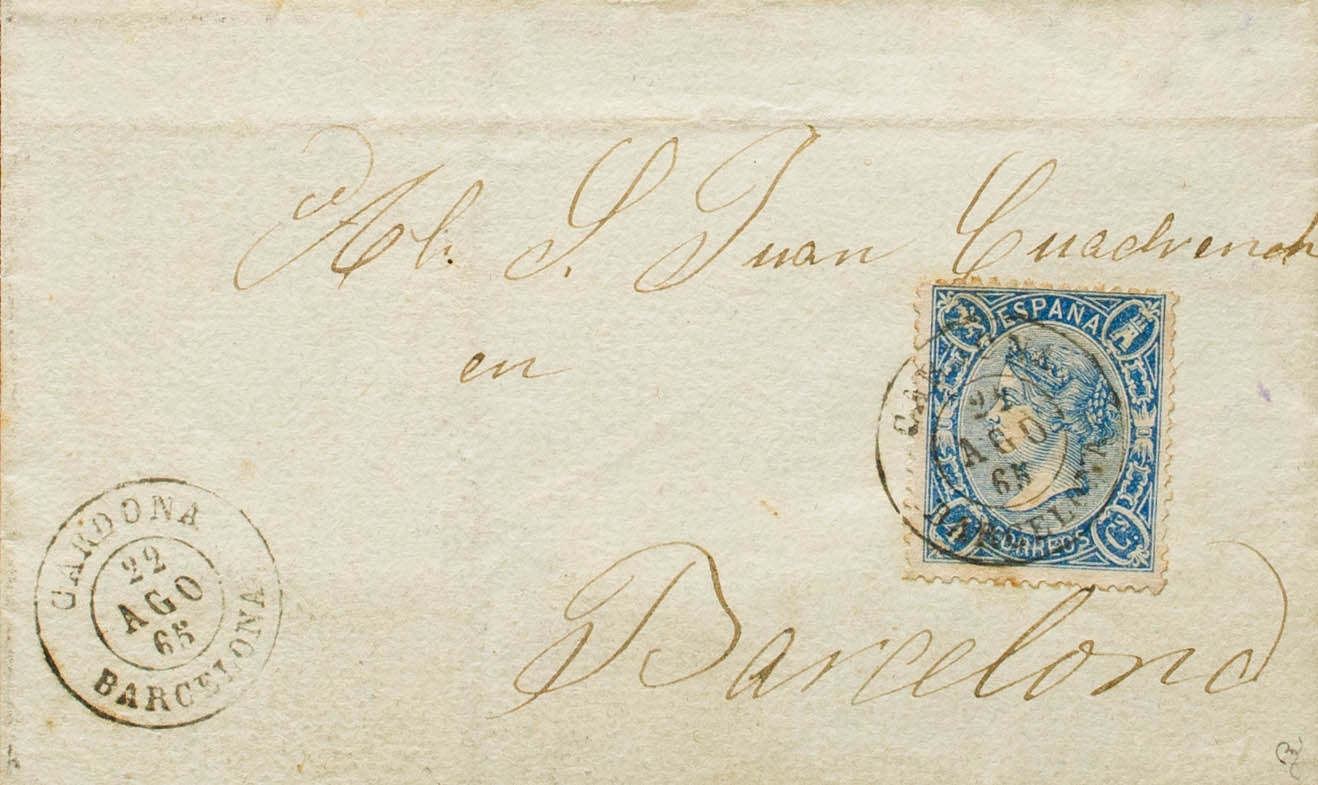 Al. S. Juan Cuadrench
en
Barcelona
ESPAÑA
CORREOS
CARDONA
22
AGO
65
BARCELONA
CARDONA
22
AGO
65
BARCELONA